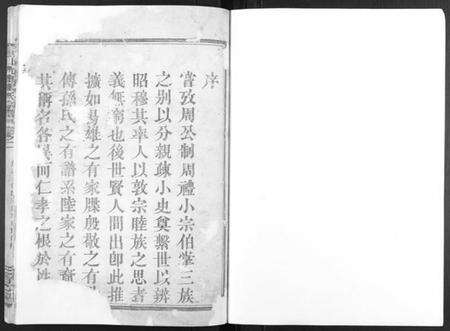 序
嘗攷周公制周禮小宗伯掌三族
之别以分親疎小史奠繫世以辨
昭穆其率人以敦宗睦族之思者
義無窮也後世賢人間出卽此推
擴如楊雄之有家牒殷敬之有
傳孫氏之有譜系陸家之有
其稱名各異而仁孝之根於性